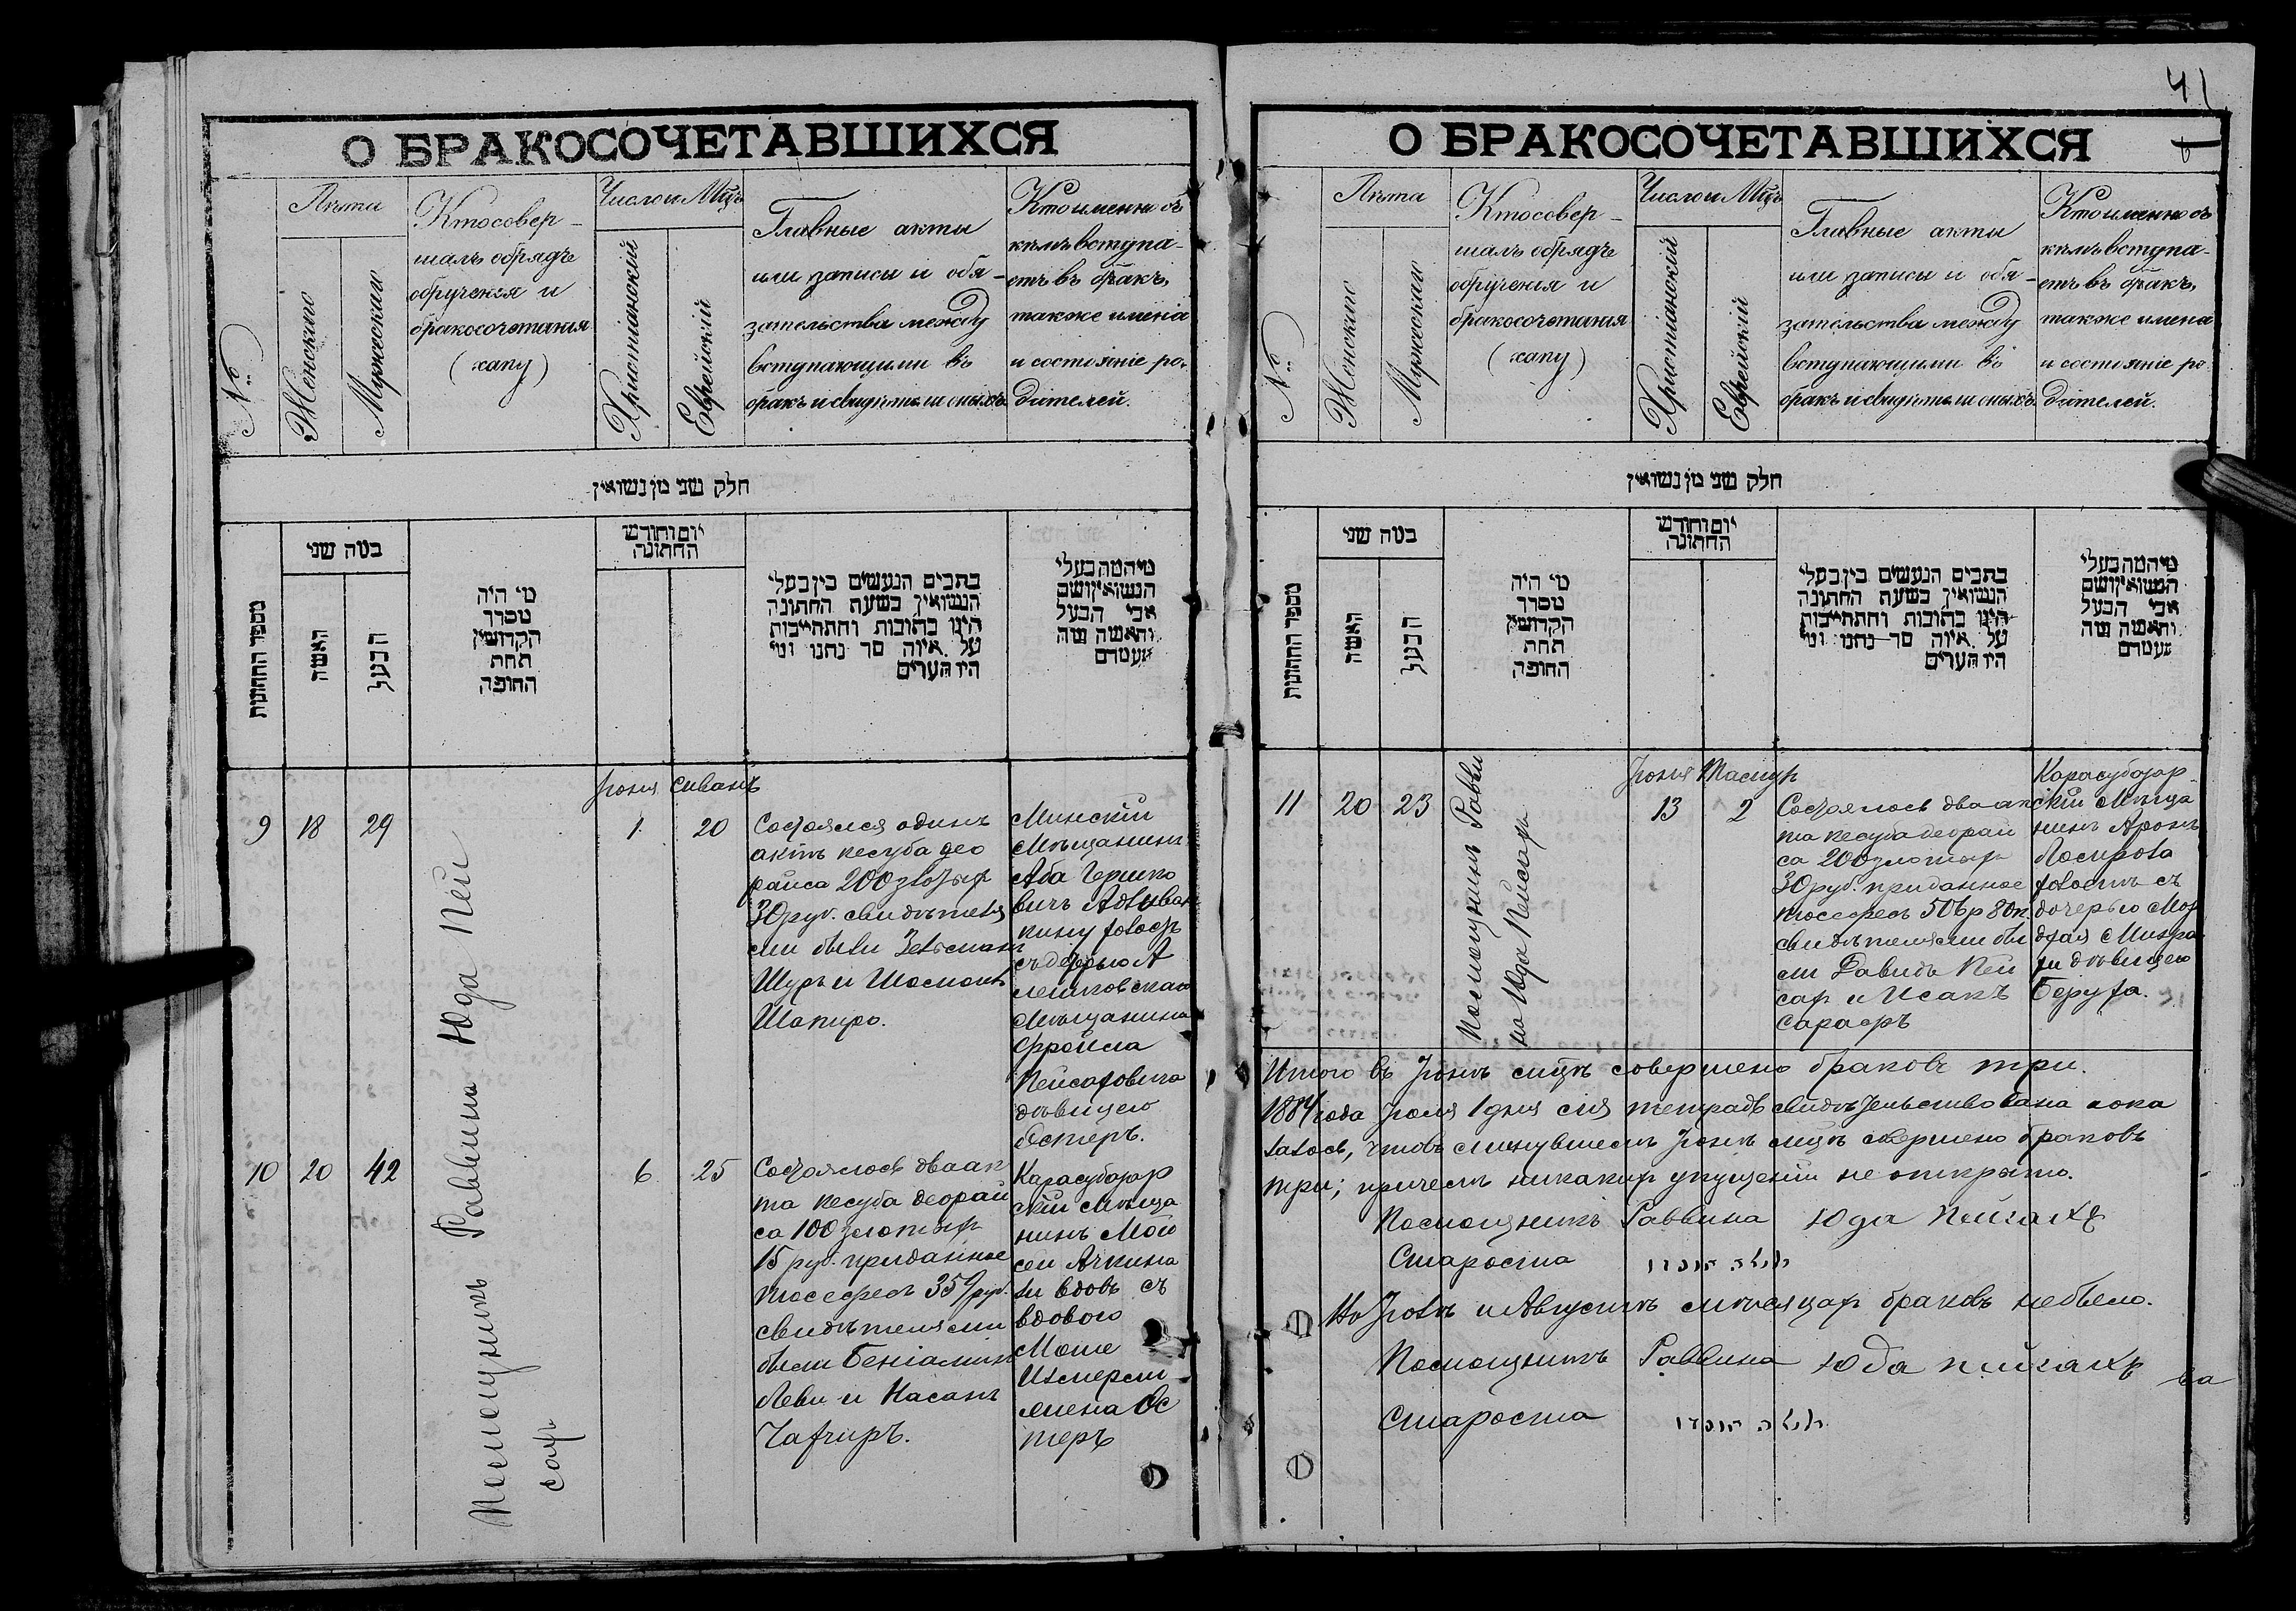 О БРАКОСОЧЕТАВШИХСЯ
№
Лѣта
Женскаго
Мужескаго
Кто совер-
шалъ обрядъ
обрученія и
бракосочетанія
(хапу)
Число и Мцъ
Христіанскій
Еврейскій
Главные акты
или записи и обя-
зательства между
вступающими въ
бракъ и свидѣтели оныхъ
Кто именно съ
кѣмъ вступа-
етъ въ бракъ,
также имена
и состояніе ро-
дителей.
חלק שני מן נשואין
מספר החתונות
כמה שני
האשה
הבעל
מי היה
מסדר
הקדושין
תחת
החופה
יום וחודש
החתונה
כתבים הנעשים בין בעלי
הנשואין בשעת החתונה
היינו כתובות והתחייבות
על איזה סך נתנו ומי
היו העדים
מי המה בעלי
הנשואין ושם
אבי הבעל
והאשה ומה
מעמדם
Іюня Сиванъ
9 18 29
1 20
Помощникъ Раввина Юда Пей
сахъ
Состоялся одинъ
актъ кесуба део
райса 200 злотыхъ
30 руб. свидѣтеля
ми были Зельсманъ
Шуръ и Шоломъ
Шапиро.
Минскій
Мѣщанинъ
Аба Гершко
вичъ
холостъ
съ дочерью А
лешковскаго
Мѣщанина
Фроима
Пейсаховича
дѣвицею
Эстеръ.
10 20 42
6 25
Состоялось два ак
та кесуба деорай
са 100 злотыхъ
15 руб. приданное
тосефесъ 359 руб.
свидѣтелями
были Беніаминъ
Леви и Насанъ
Чахчиръ.
Карасубазар
скій Мѣща
нинъ Мой
сей Ачкина
зи вдовъ съ
вдовою
Моше
Измерли
елиена Эс
теръ
41
О БРАКОСОЧЕТАВШИХСЯ
№
Лѣта
Женскаго
Мужескаго
Кто совер-
шалъ обрядъ
обрученія и
бракосочетанія
(хапу)
Число и Мцъ
Христіанскій
Еврейскій
Главные акты
или записи и обя-
зательства между
вступающими въ
бракъ и свидѣтели оныхъ
Кто именно съ
кѣмъ вступа-
етъ въ бракъ,
также имена
и состояніе ро-
дителей.
חלק שני מן נשואין
מספר החתונות
כמה שני
האשה
הבעל
מי היה
מסדר
הקדושין
תחת
החופה
יום וחודש
החתונה
כתבים הנעשים בין בעלי
הנשואין בשעת החתונה
היינו כתובות והתחייבות
על איזה סך נתנו ומי
היו העדים
מי המה בעלי
הנשואין ושם
אבי הבעל
והאשה ומה
מעמדם
Іюня Тамузъ
11 20 23
Помощникъ Равви
на Юда Пейсахъ
13 2
Состоялось два ак
та кесуба деорай
са 200 злотыхъ
30 руб. приданное
тосефесъ 506 р 80 к.
свидѣтелями бы
ли Давидъ Пей
сах и Исакъ
Сарафъ
Карасубазар
скій Мѣща
нинъ Аронъ
холостъ съ
дочерью Мор
дхая Мизра
хи дѣвицею
Беруха.
Итого въ Іюнѣ мцѣ совершено браковъ три.
1884 года Іюля 1 дня сія тетрадь свидѣтельствована oказ
залось, что въ минувшемъ Іюнѣ мцѣ совершено браковъ
три; причемъ никакихъ упущеній не открыто.
Помощникъ Раввина Юда Пейсахъ
Староста
Въ Іюлѣ и Августѣ мѣсяцахъ браковъ не было.
Помощникъ Раввина Юда Пейсахъ
Староста